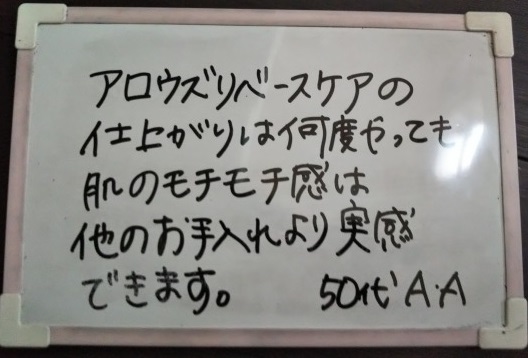 アロウズリベースケアの
仕上がりは何度やっても
肌のモチモチ感は
他のお手入れより実感
できます。 50代 A・A